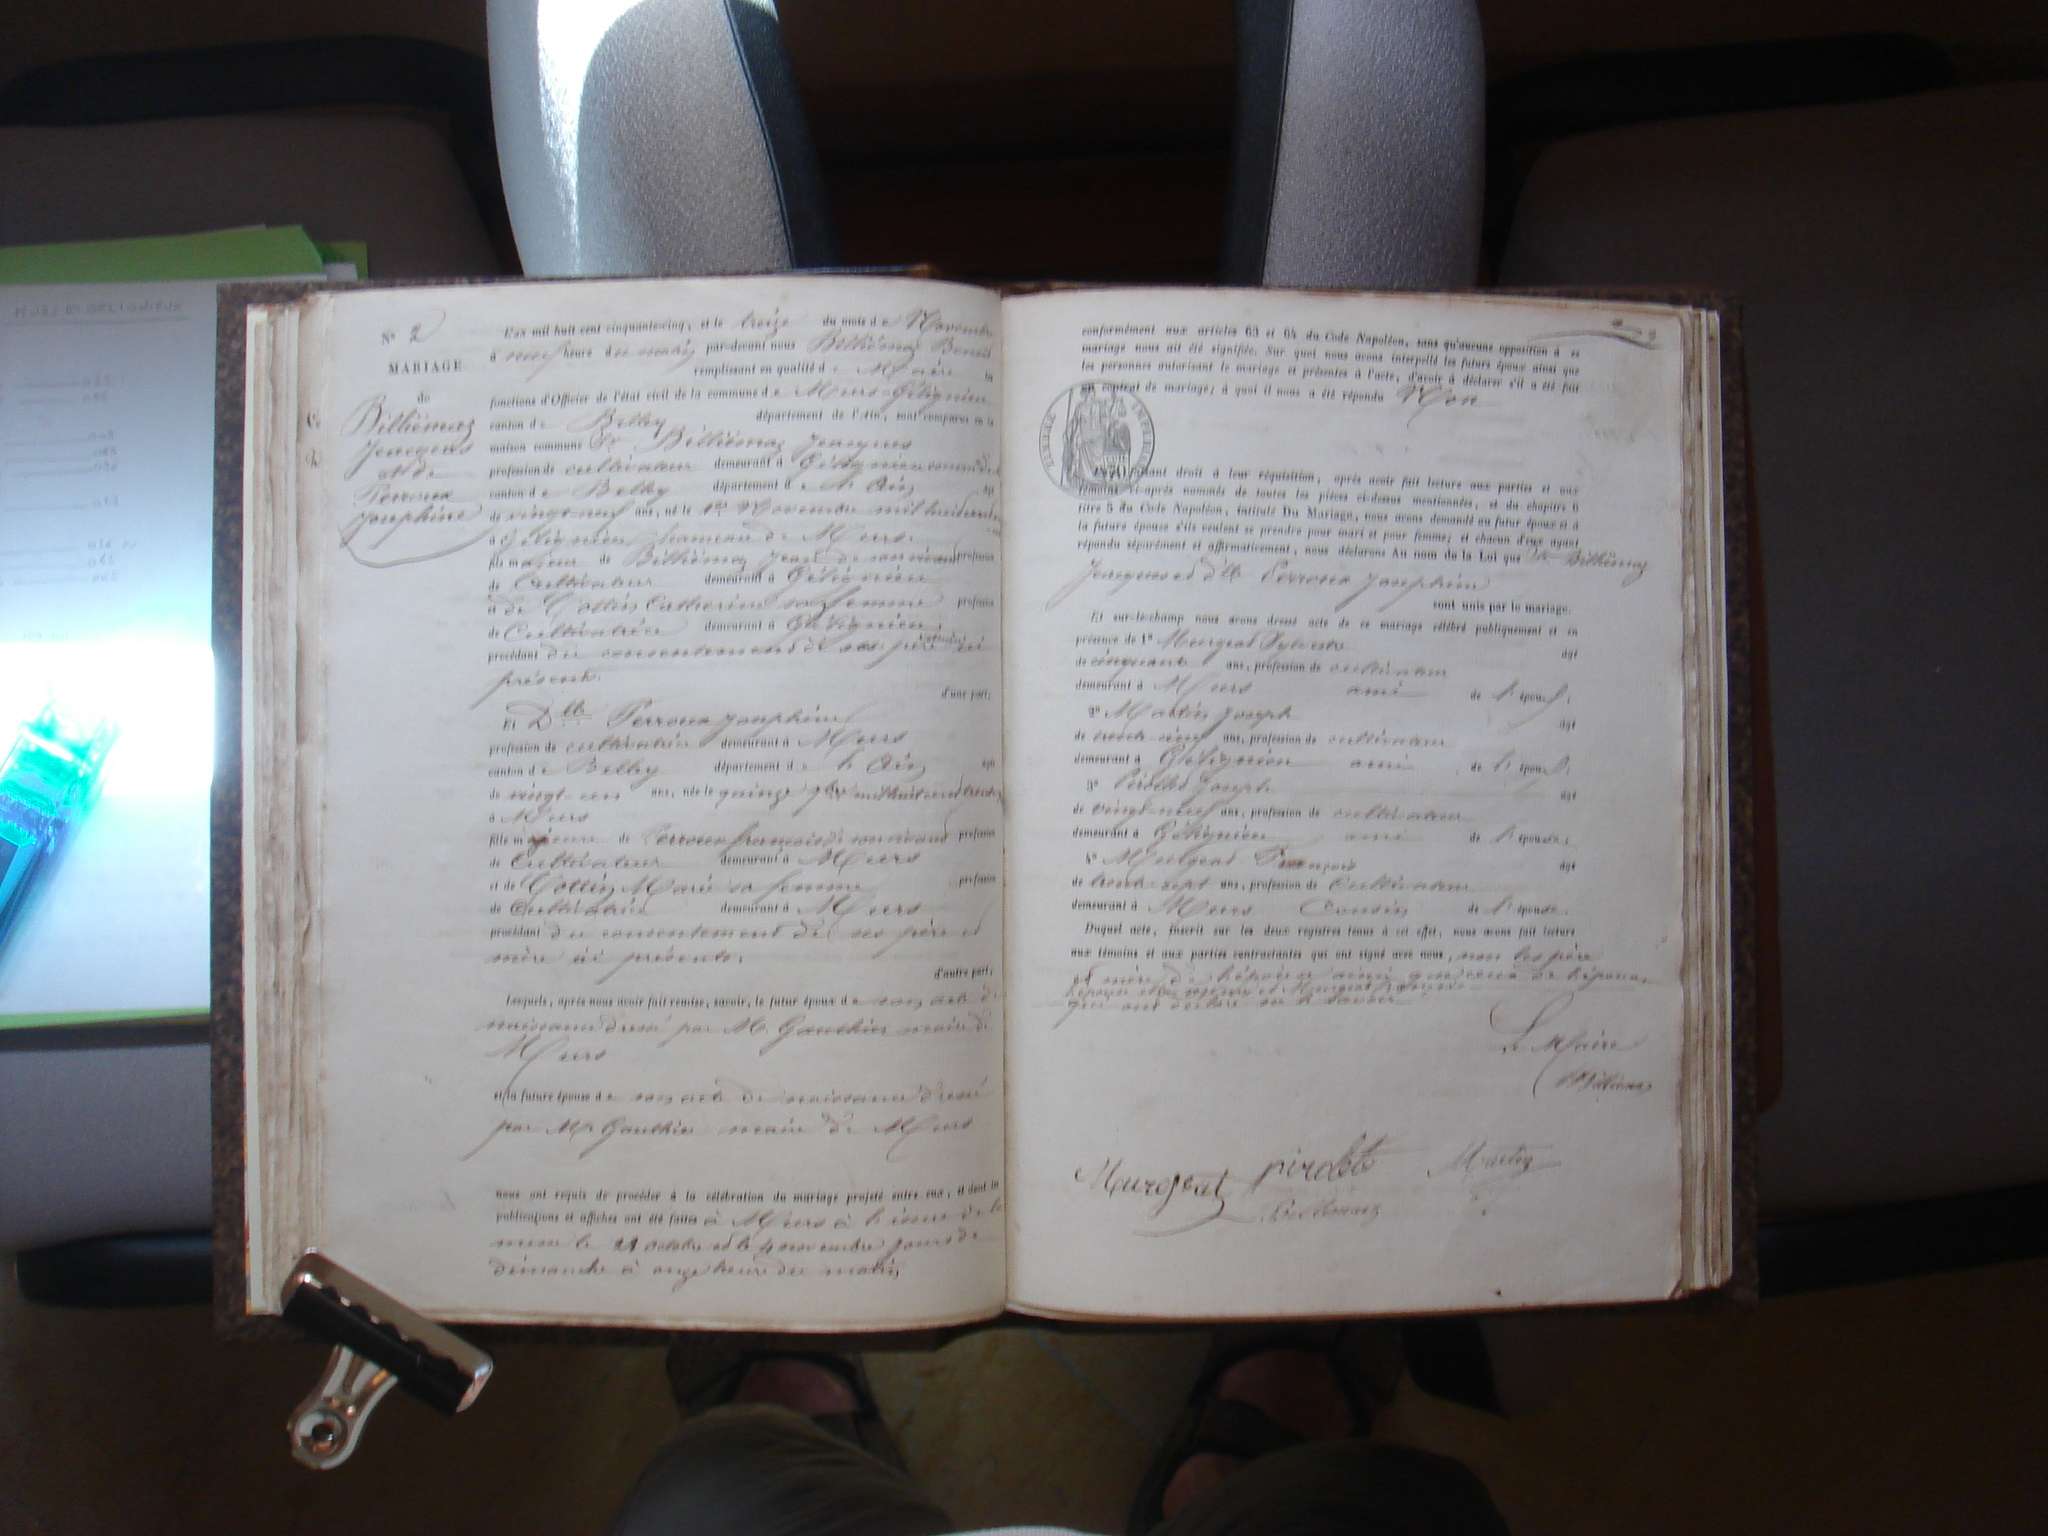 N° 2
MARIAGE
de
Billiémaz
Jacques
et de
Perroux
Josephine
L'an mil huit cent cinquante-cinq, et le treize du mois de Novembre
à neuf heure du matin par-devant nous Billiémaz Benoit
remplissant en qualité de Maire les
fonctions d'Officier de l'état civil de la commune de Murs-Gélignieu
canton de Belley département de l'Ain, sont comparus en la
maison commune Sr Billiémaz Jacques
profession de cultivateur demeurant à Gélignieu
canton de Belley département de l'Ain âgé
de vingt neuf ans, né le 1er Novembre mil huit cent
à Gélignieu hameau de Murs
fils majeur de Billiémaz Jean de son vivant profession
de Cultivateur demeurant à Gélignieu
et de Gottin Catherine sa femme profession
de Cultivatrice demeurant à Gélignieu
procédant du consentement de ses père et mère ici
présents.
d'une part;
Et Dlle Perroux Josephine
profession de cultivatrice demeurant à Murs
canton de Belley département de l'Ain âgée
de vingt-un ans, née le quinze mil huit cent trente
à Murs
fille majeure de Perroux françois de son vivant profession
de Cultivateur demeurant à Murs
et de Gottin Marie sa femme profession
de Cultivatrice demeurant à Murs
procédant du consentement de ses père et
mère ici présents,
d'autre part;
Lesquels, après nous avoir fait remise, savoir, le futur époux de son acte de
naissance dressé par Mr Gauthier maire de
Murs
et la future épouse de son acte de naissance dressé
par Mr Gauthier maire de Murs
nous ont requis de procéder à la célébration du mariage projeté entre eux, et dont les
publications et affiches ont été faites à Murs à l'issue de la
messe le 21 octobre et le 4 novembre jours de
dimanche à onze heure du matin
conformément aux articles 63 et 64 du Code Napoléon, sans qu'aucune opposition à ce
mariage nous ait été signifiée. Sur quoi nous avons interpellé les futurs époux ainsi que
les personnes autorisant le mariage et présentes à l'acte, d'avoir à déclarer s'il a été fait
un contrat de mariage; à quoi il nous a été répondu Non
TIMBRE IMPERIAL
Faisant droit à leur réquisition, après avoir fait lecture aux parties et aux
témoins ci-après nommés de toutes les pièces ci-dessus mentionnées, et du chapitre 6
titre 5 du Code Napoléon, intitulé Du Mariage, nous avons demandé au futur époux et à
la future épouse s'ils veulent se prendre pour mari et pour femme; et chacun d'eux ayant
répondu séparément et affirmativement, nous déclarons Au nom de la Loi que Sr Billiémaz
Jacques et dlle Perroux Josephine
sont unis par le mariage.
Et sur-le-champ nous avons dressé acte de ce mariage célébré publiquement et en
présence de 1° Murgeat Sylvestre âgé
de cinquante ans, profession de cultivateur
demeurant à Murs ami de l'époux;
2° Martin Joseph âgé
de ans, profession de cultivateur
demeurant à Gélignieu ami de l'époux;
3° Pirolet Joseph âgé
de vingt-neuf ans, profession de cultivateur
demeurant à Gélignieu ami de l'épouse;
4° Murgeat François âgé
de trente-sept ans, profession de Cultivateur
demeurant à Murs Cousin de l'épouse.
Duquel acte, inscrit sur les deux registres tenus à cet effet, nous avons fait lecture
aux témoins et aux parties contractantes qui ont signé avec nous, non les père
et mère de l'épouse ainsi que ceux de l'époux,
l'épouse et Murgeat françois
qui ont déclaré ne le savoir
Le Maire
Billiémaz
Murgeat pirolet Martin
Billiemaz